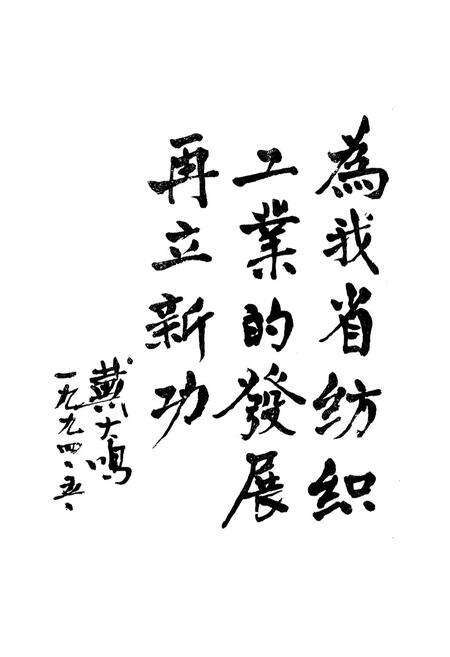 為我省紡織
工業的發展
再立新功
大鳴
一九九四、五、